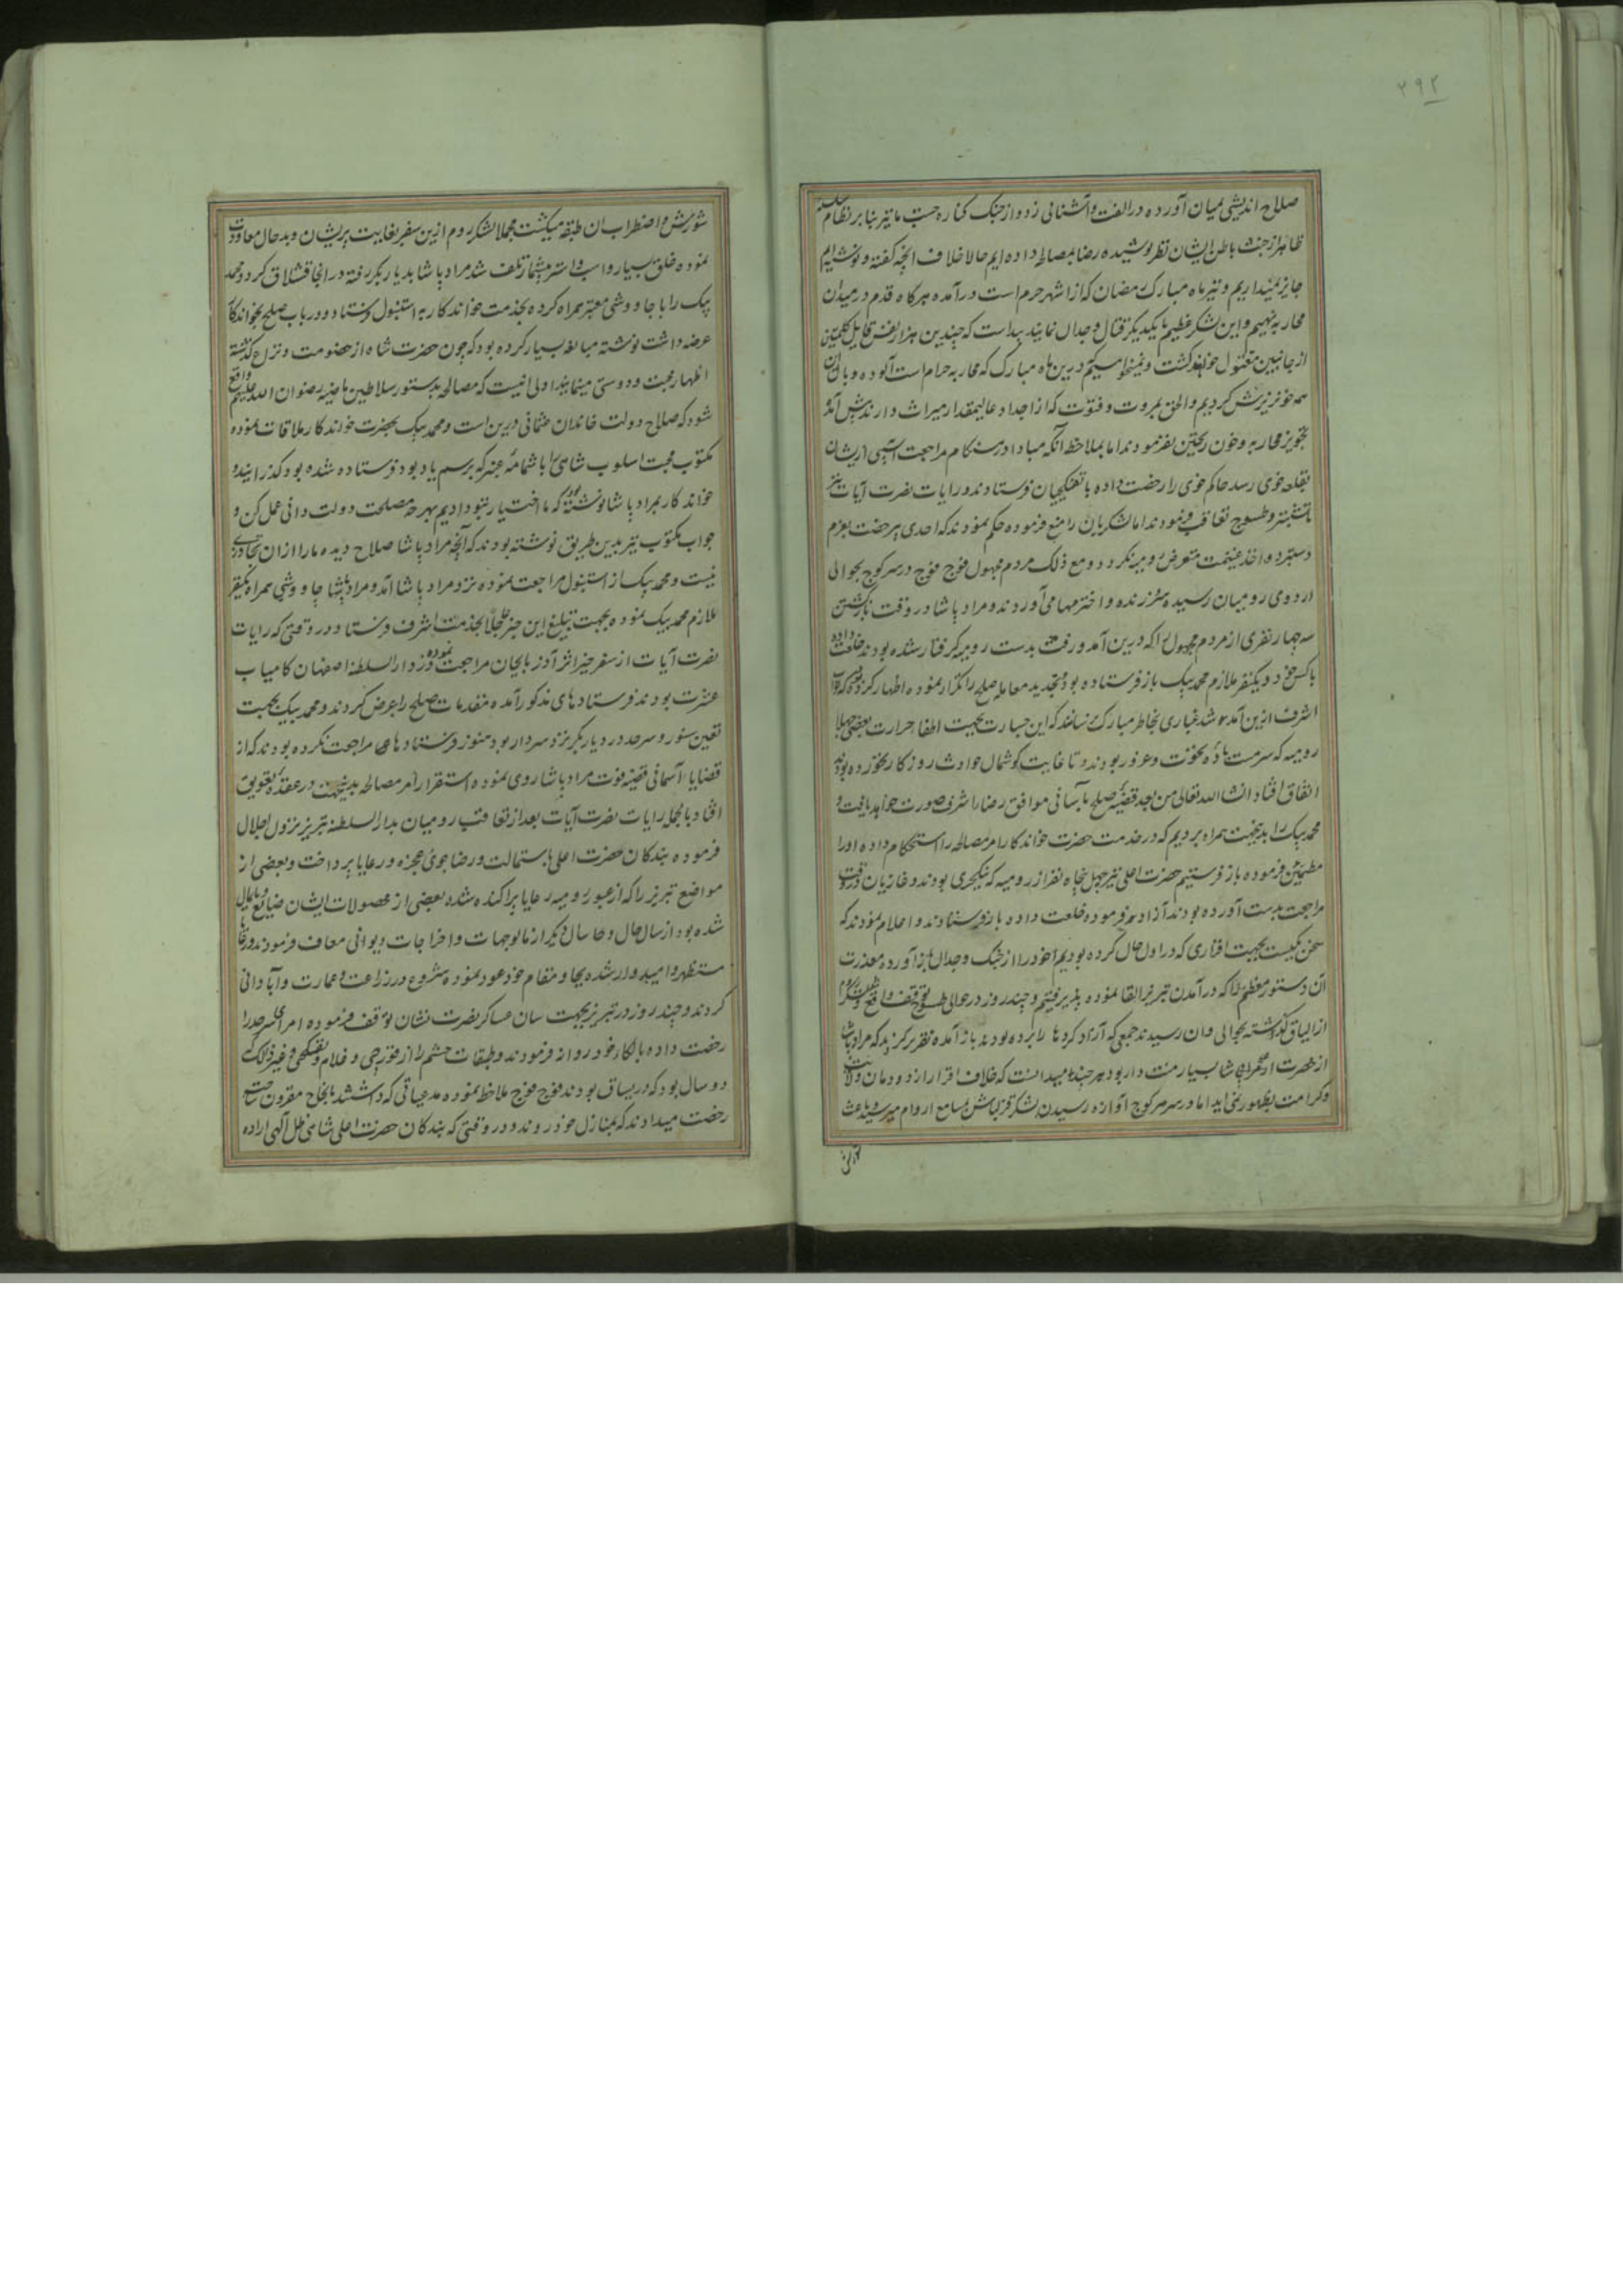 ۲۹۲
صلاح اندیشی بمیان آورده در الفت و آشنائی زد و از جنک کناره جست ما نیز بنابر نظام سلسله
ظاهر از خبث باطن ایشان نظر پوشیده رضا بمصالحه داده ایم حالا خلاف آنچه کفته و نوشته ایم
جایز نمیداریم و نیز ماه مبارک رمضان که از اشهر حرم است درآمده هرکاه قدم در میدان
محاربه نهیم و این لشکر عظیم با یکدیکر قتال و جدال نمایند پیداست که چندین هزار نفس قایل کلمتین
از جانبین مقتول خواهد کشت و نمیخواهیم که درین ماه مبارک که محاربه حرام است آلوده وبال آن
همه خونریزش کردیم و الحق بمروت و فتوت که از اجداد عالیمقدار میراث دارند پیش آمده
تجویز محاربه و خون ریختن نفرمودند اما بملاحظه آنکه مبادا در هنکام مراجعت آسیبی از ایشان
بقلعه خوی رسد حاکم خوی را رخصت داده با تفنکچیان فرستادند و رایات نصرت آیات نیز
تا شبستر و طسوج تعاقب فرمودند اما لشکریان را منع فرموده حکم نمودند که احدی بیرخصت بعزم
دستبرد و اخذ غنیمت متعرض رومیه نکردد و مع ذلک مردم مجهول فوج فوج در سر کوچ بحوالی
اردوی رومیان رسیده سر زنده و اخترمها می آوردند و مراد پاشا در وقت بازکشتن
سه چهار نفری از مردم مجهول را که درین آمد و رفت بدست رومیه کرفتار شده بودند خلعت داده
با کس خود و یکنفر ملازم محمد بیک باز فرستاده بود و تجدید معامله صلح را تکرار نموده اظهار کرده بود که نواب
اشرف ازین آمد و شد غباری بخاطر مبارک نرسانند که این جسارت بجهت اطفا حرارت بعضی جهلا
رومیه که سرمست باده نخوت و غرور بودند و تا غایت کوشمال حوادث روزکار نخورده بودند
اتفاق افتاد انشاء الله تعالی من بعد قضیه صلح بآسانی موافق رضاء اشرف صورت خواهد یافت و
محمد بیک را بدینجهت همراه بردیم که در خدمت حضرت خواندکار امر مصالحه را استحکام داده او را
مطمئن فرموده باز فرستیم حضرت اعلی نیز چهل پنجاه نفر از رومیه که ینکچری بودند و غازیان در وقت
مراجعت بدست آورده بودند آزاد فرموده خلعت داده باز فرستادند و اعلام نمودند که
سخن یکیست بجهت اقراری که در اول حال کرده بودیم خود را از جنک و جدال باز آورده معذرت
آن دستور معظم را که در آمدن تبریز القا نموده پذیرفتیم و چند روز در حوالی طسوج توقف واقع شد لشکر روم
از الباق کذشته بحوالی وان رسیدند جمعی که آزاد کردها را برده بودند باز آمده تقریر کردند که مراد پاشا
از حضرت اعلی شاهی بسیار منت دار بود هر چند میدانست که خلاف اقرار از دودمان ولایت
و کرامت بظهور نمی آید اما در سر هر کوچ آوازه رسیدن لشکر قزلباش بمسامع اروام میرسید و باعث
شورش و اضطراب آن طبقه میکشت مجملا لشکر روم ازین سفر بغایت پریشان و بدحال معاودت
نموده خلق بسیار و اسب و استر بیشمار تلف شد مراد پاشا بدیار بکر رفته در آنجا قشلاق کرد و محمد
بیک را با چاووشی معتبر همراه کرده بخدمت خواندکار به استنبول فرستاد و در باب صلح بخواندکار
عرضه داشت نوشته مبالغه بسیار کرده بود که چون حضرت شاه از خصومت و نزاع کذشته
اظهار محبت و دوستی مینمایند اولی آنیست که مصالحه بدستور سلاطین ماضیه رضوان الله علیهم واقع
شود که صلاح دولت خاندان عثمانی درین است و محمد بیک بحضرت خواندکار ملاقات نموده
مکتوب محبت اسلوب شاهی را با شمامه عنبر که برسم یادبود فرستاده شده بود کذرانید و
خواندکار بمراد پاشا نوشته بود که ما اختیار بتو دادیم بهرچه مصلحت دولت دانی عمل کن و
جواب مکتوب نیز بدین طریق نوشته بودند که آنچه مراد پاشا صلاح دیده ما را از آن تجاوزی
نیست و محمد بیک از استنبول مراجعت نموده نزد مراد پاشا آمد و مراد پاشا چاووشی همراه یکنفر
ملازم محمد بیک نموده بجهت تبلیغ این خبر عجالة بخدمت اشرف فرستاد و در وقتی که رایات
نصرت آیات از سفر خیر اثر آذربایجان مراجعت نموده در دار السلطنه اصفهان کامیاب
عشرت بودند فرستادهای مذکور آمده مقدمات صلح را عرض کردند و محمد بیک بجهت
تعین سنور و سرحد در دیار بکر نزد سردار بود هنوز فرستادهای مراجعت نکرده بودند که از
قضایاء آسمانی قضیه فوت مراد پاشا روی نموده استقرار امر مصالحه بدینجهت در عقده تعویق
افتاد بالجمله رایات نصرت آیات بعد از تعاقب رومیان بدار السلطنه تبریز نزول اجلال
فرموده بندکان حضرت اعلی باستمالت و رضاجوئی عجزه و رعایا پرداخت و بعضی از
مواضع تبریز را که از عبور رومیه رعایا پراکنده شده بعضی از محصولات ایشان ضایع و پایمال
شده بود از سال حال و حا سال دیکر از مالوجهات و اخراجات دیوانی معاف فرمودند و رعایا
مستظهر و امیدوار شده بجا و مقام خود عود نموده شروع در زراعت و عمارت و آبادانی
کردند و چند روز در تبریز بجهت سان عساکر نصرت نشان توقف فرموده امرای سرحد را
رخصت داده بالکاء خود روانه فرمودند و طبقات حشم را از قورچی و غلام و تفنکچی و غیر ذلک که
دو سال بود که در یساق بودند فوج فوج ملاحظه نموده مدعیاتی که داشتند بانجاح مقرون ساخته
رخصت میدادند که بمنازل خود روند و در وقتی که بندکان حضرت اعلی شاهی ظل آلهی اراده